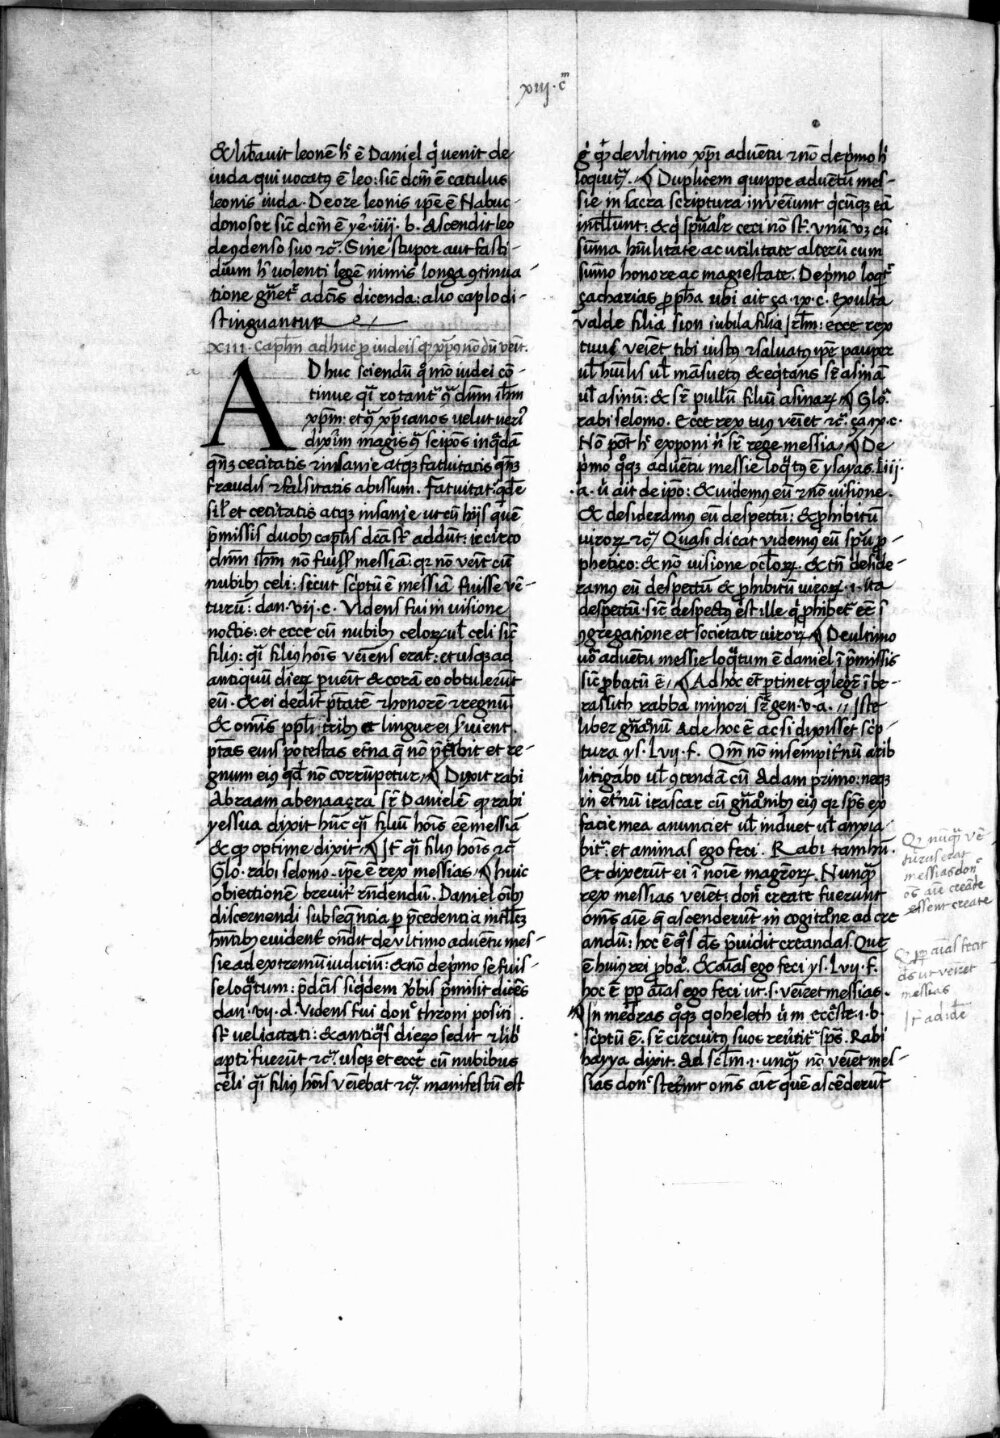 xiij. cͫ
& lib̄auit leonē hͥ ē Daniel q̇ venit de
iuda qui vocatꝰ ē leo: sic̄ dcm̄ ē catulus
leonis iuda. De ore leonis ip̄e ē Nabuc-
donosor sic̄ dcm̄ ē yeͤ. iiij. b. Ascendit leo
de ꝯdenso suo ⁊c̄. Sine stupor aut fasti-
dium hͥ volenti legē nimis longa ꝯtinua-
tione gn̄et̄ adcis dicenda: alio cap̄lo di-
stinguantur
XIII. cap̄lm adhuc ꝓ iudeis q xp̄ꝰ nōdū venit.
ADhuc sciendū qͦmō iudei cō-
tinue qͣi rotant̄ ꝯ dn̄m ih̄m
xp̄m: et ꝯ xp̄ianos velut veri
dixim magis ꝯ seip̄os inqͣdā
qn̄ꝫ cecitatis ⁊ insanie atqꝫ fatuitatis qn̄ꝫ
fraudis ⁊ falsitatis abissum. Fatuitat̄ qͥde
sil̄ et cecitatis atqꝫ insanie ut eū hijs que
p̄missis duobꝫ cap̄lis dc̄a st̄ addūt: icirco
dn̄m ih̄m non fuiss̄ messiā: qr nō venit cū
nubibꝫ celi: sicut sc̄ptū ē messiā fuisse vē-
turū: dan. vij. c. Videns fui in visione
noctis: et ecce cū nubibꝫ celoꝝ ul̄ celi sic̄
filiꝰ: qͣi filiꝰ hoīs veiēns erat: et usqꝫ ad
antiquū dieꝝ pueit & corā eo obtulerūt
eū. & ei dedit p̄tatē ⁊ honorē ⁊ regnū
& omīs pp̄li tribꝫ et lingue ei ſ̄uient.
p̄tas euis potestas et̄na q̄ nō p̄t̄ibit et re-
gnum eiꝰ qd̄ nō corrūpetur. Dixit rabi
Abraam abenaaçra sr̄ Danielē ꝙ rabi
yessua dixit hūc qͣi filiū hoīs eē messiā
& ꝙ optime dixit. It̄ qͣi filiꝰ hoīs ⁊c̄
Glo. rabi selomo. ip̄e ē rex messias. huic
obiectionē breuit̄ rn̄dendū. Daniel oībꝫ
discernendi subseqn̄tia ꝑ p̄cedentia intll̄cꝫ
hn̄tibꝫ euident̄ on̄dit de vltimo aduētu mes-
sie ad extremū iudiciū: & nō de pͥmo se fuis-
se loqͥtum: p̄dcīs siqͥdem v̄bis p̄misit dicēs
dan. vij. d. Videns fui donͨ throni positi
st̄ vel iactati: & antiqͥs dieꝝ sedit ⁊ libͥ
apti fuerūt ⁊c̄. usqꝫ et ecce cū nubibus
celi qͣi filius hoīs veīebat ⁊c̄. manifestū est
gͥ ꝙ de vltimo xp̄i aduētu ⁊ nō de pͥmo hͥ
loquit̄. Duplicem quippe aduētū mes-
sie in sacra scriptura inveīunt qͥcūqꝫ eā
intll̄unt: & qͥ spūalr̄ ceci nō st̄. vnū vꝫ cū
sūma hūilitate ac utilitate alterū cum
sūmo honore ac magestate. De pͥmo loqͥt̄
çacharias ꝓph̄a ubi ait ça. ix. c. Exulta
valde filia sion iubila filia Jrl̄m: ecce rex
tuus veiet tibi iustꝰ ⁊ saluatꝰ ip̄e pauper
ul̄ hūilis ul̄ māsuetꝰ & eqͥtans sr̄ asinā
ul̄ asinū: & sr̄ pullū filiū asinaꝝ. Glo.
rabi selomo. Ecce rex tuꝰ veīet ⁊c̄. ça. ix. c.
Nō p̄ōt hͥ exponi nͥ sr̄ rege messia. De
pͥmo qͦqꝫ aduētu messie loqͥtꝰ ē ysayas. Liij.
a. ū ait de ip̄o: & uidemꝰ eū ⁊ nō visione.
& desideramꝰ eū despectū: & ꝓhibitū
uiroꝝ ⁊c̄. Quasi dicat videmꝰ eū spū ꝓ-
phetico: & nō visione ocl̄oꝝ. & tn̄ deside-
ramꝰ eū despectū & ꝓhibitū uiroꝝ. i. ita
despectū. sic̄ despectꝰ est ille qͥ ꝓhibet̄ eē ſ
ꝯgregatione et societate uiroꝝ. De ultimo
uō aduētu messie loqͥtum ē daniel ī p̄missis
sic̄ ꝓbatū ē. Ad hoc et̄ ptinet ꝙ legͥ ī be-
rasith rabba minori sr̄ gen. v. a. // Iste
liber gn̄ōnū Ade hoc ē ac si dixisset scͥp-
tura ys. Lvij. f. Qm̄ non in sempit̄nū
litigabo ul̄ ꝯtendā cū Adam primo: neqꝫ
in et̄nū irascar cū gn̄aōnibꝫ eiꝰ qr sp̄s ex
facie mea anunciet ul̄ induet ul̄ anxia-
bit̄. et animas ego feci. Rabi tamhu.
Et dixerūt ei ī noīe magr̄oꝝ. Nunqͣ
rex messias veiet: donͨ create fuerunt
om̄s aīe q̄ ascenderūt in cogitaͦne ad cre
andū: hoc ē qͣs dꝰ p̄uidit creandas. Que
ē huiꝰ rei ꝓbaͦ. & aīas ego feci ys. Lvij. f.
hoc ē ꝓp aīas ego feci ut. s. veīret messias.
In medras qͦqꝫ qoheleth ū in eccͣste. i. b.
sc̄ptū ē. sr̄ circuitꝰ suos reūtit̄ sp̄s. Rabi
hayya dixit. ad scl̄m. i. unqͣ nō veiet mes-
sias donͨ stet̄int om̄s aīe que ascēderūt
Qr nūqͣ vē
turus erat
messias donͨ
oēs aīe create
essent create
Q ꝓp aīas fecit
dꝰs ut veniret
messias
It̄ ad idē